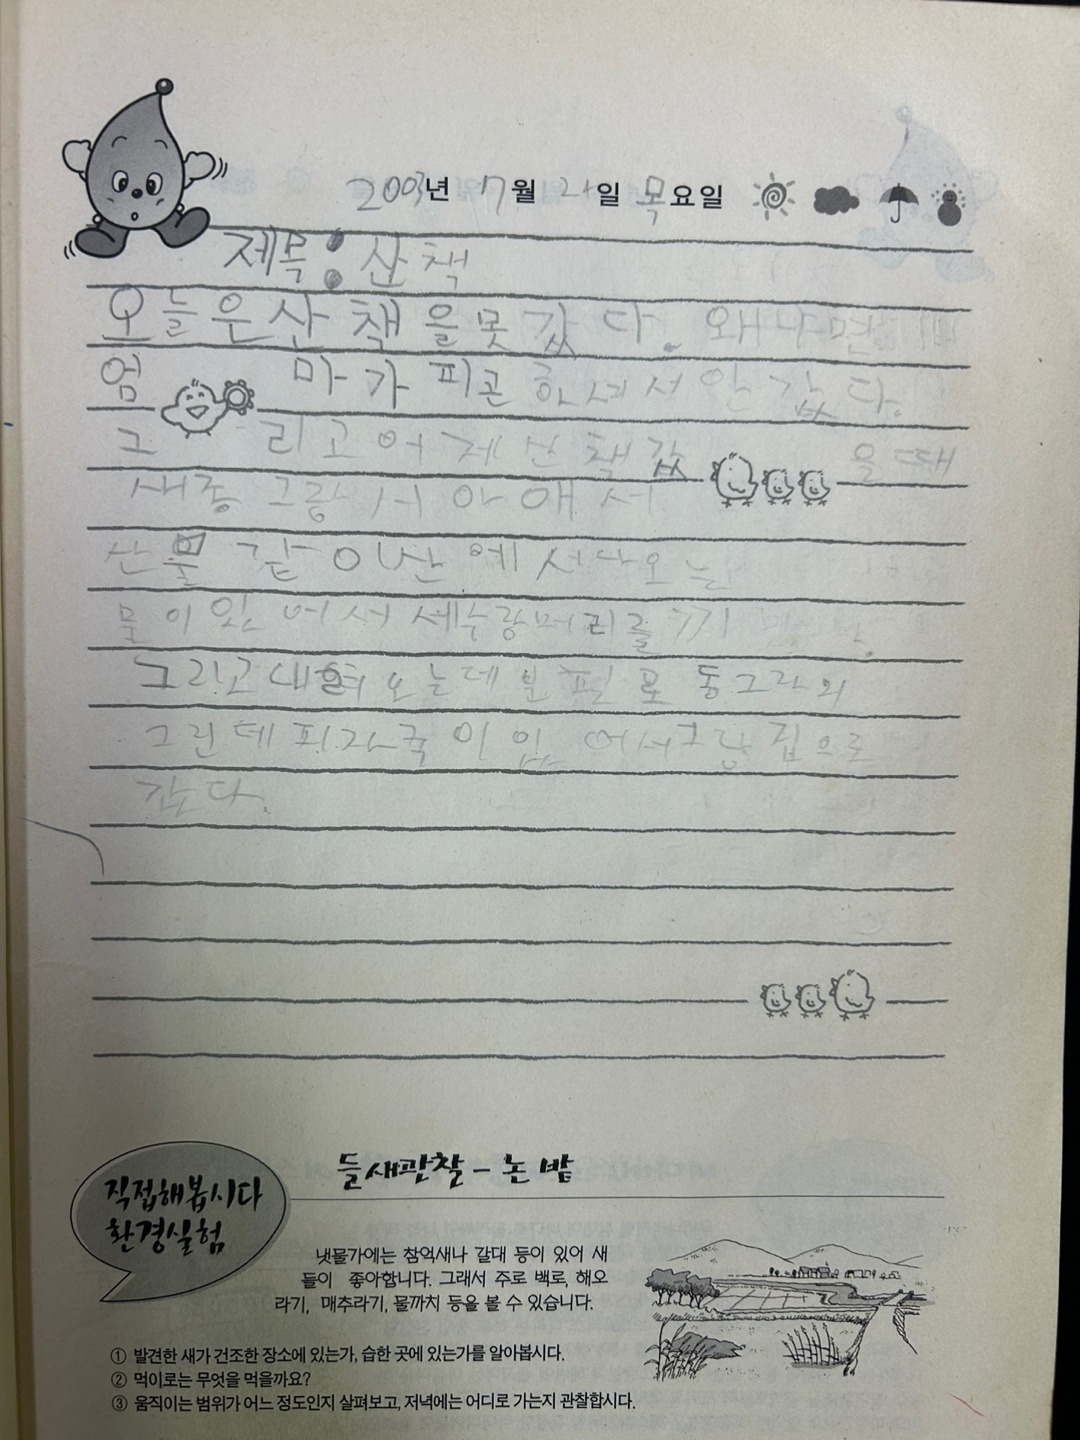 2003년 7월 21일 목요일
제목: 산책
오늘은 산책을 못 갔다. 왜냐면
엄 마가 피곤하셔서 안 갔다.
그 리고 어제 산책 갔 을 때
산물 같이 산에서 나오는
물이 있어서 세수랑 머리를
그리고 내려오는데 분필로 동그라미
그린데 피자국이 있어서 그냥 집으로
갔다.
직접해봅시다
환경실험
들새관찰 - 논 밭
냇물가에는 참억새나 갈대 등이 있어 새
들이 좋아합니다. 그래서 주로 백로, 해오
라기, 매추라기, 물까치 등을 볼 수 있습니다.
① 발견한 새가 건조한 장소에 있는가, 습한 곳에 있는가를 알아봅시다.
② 먹이로는 무엇을 먹을까요?
③ 움직이는 범위가 어느 정도인지 살펴보고, 저녁에는 어디로 가는지 관찰합시다.